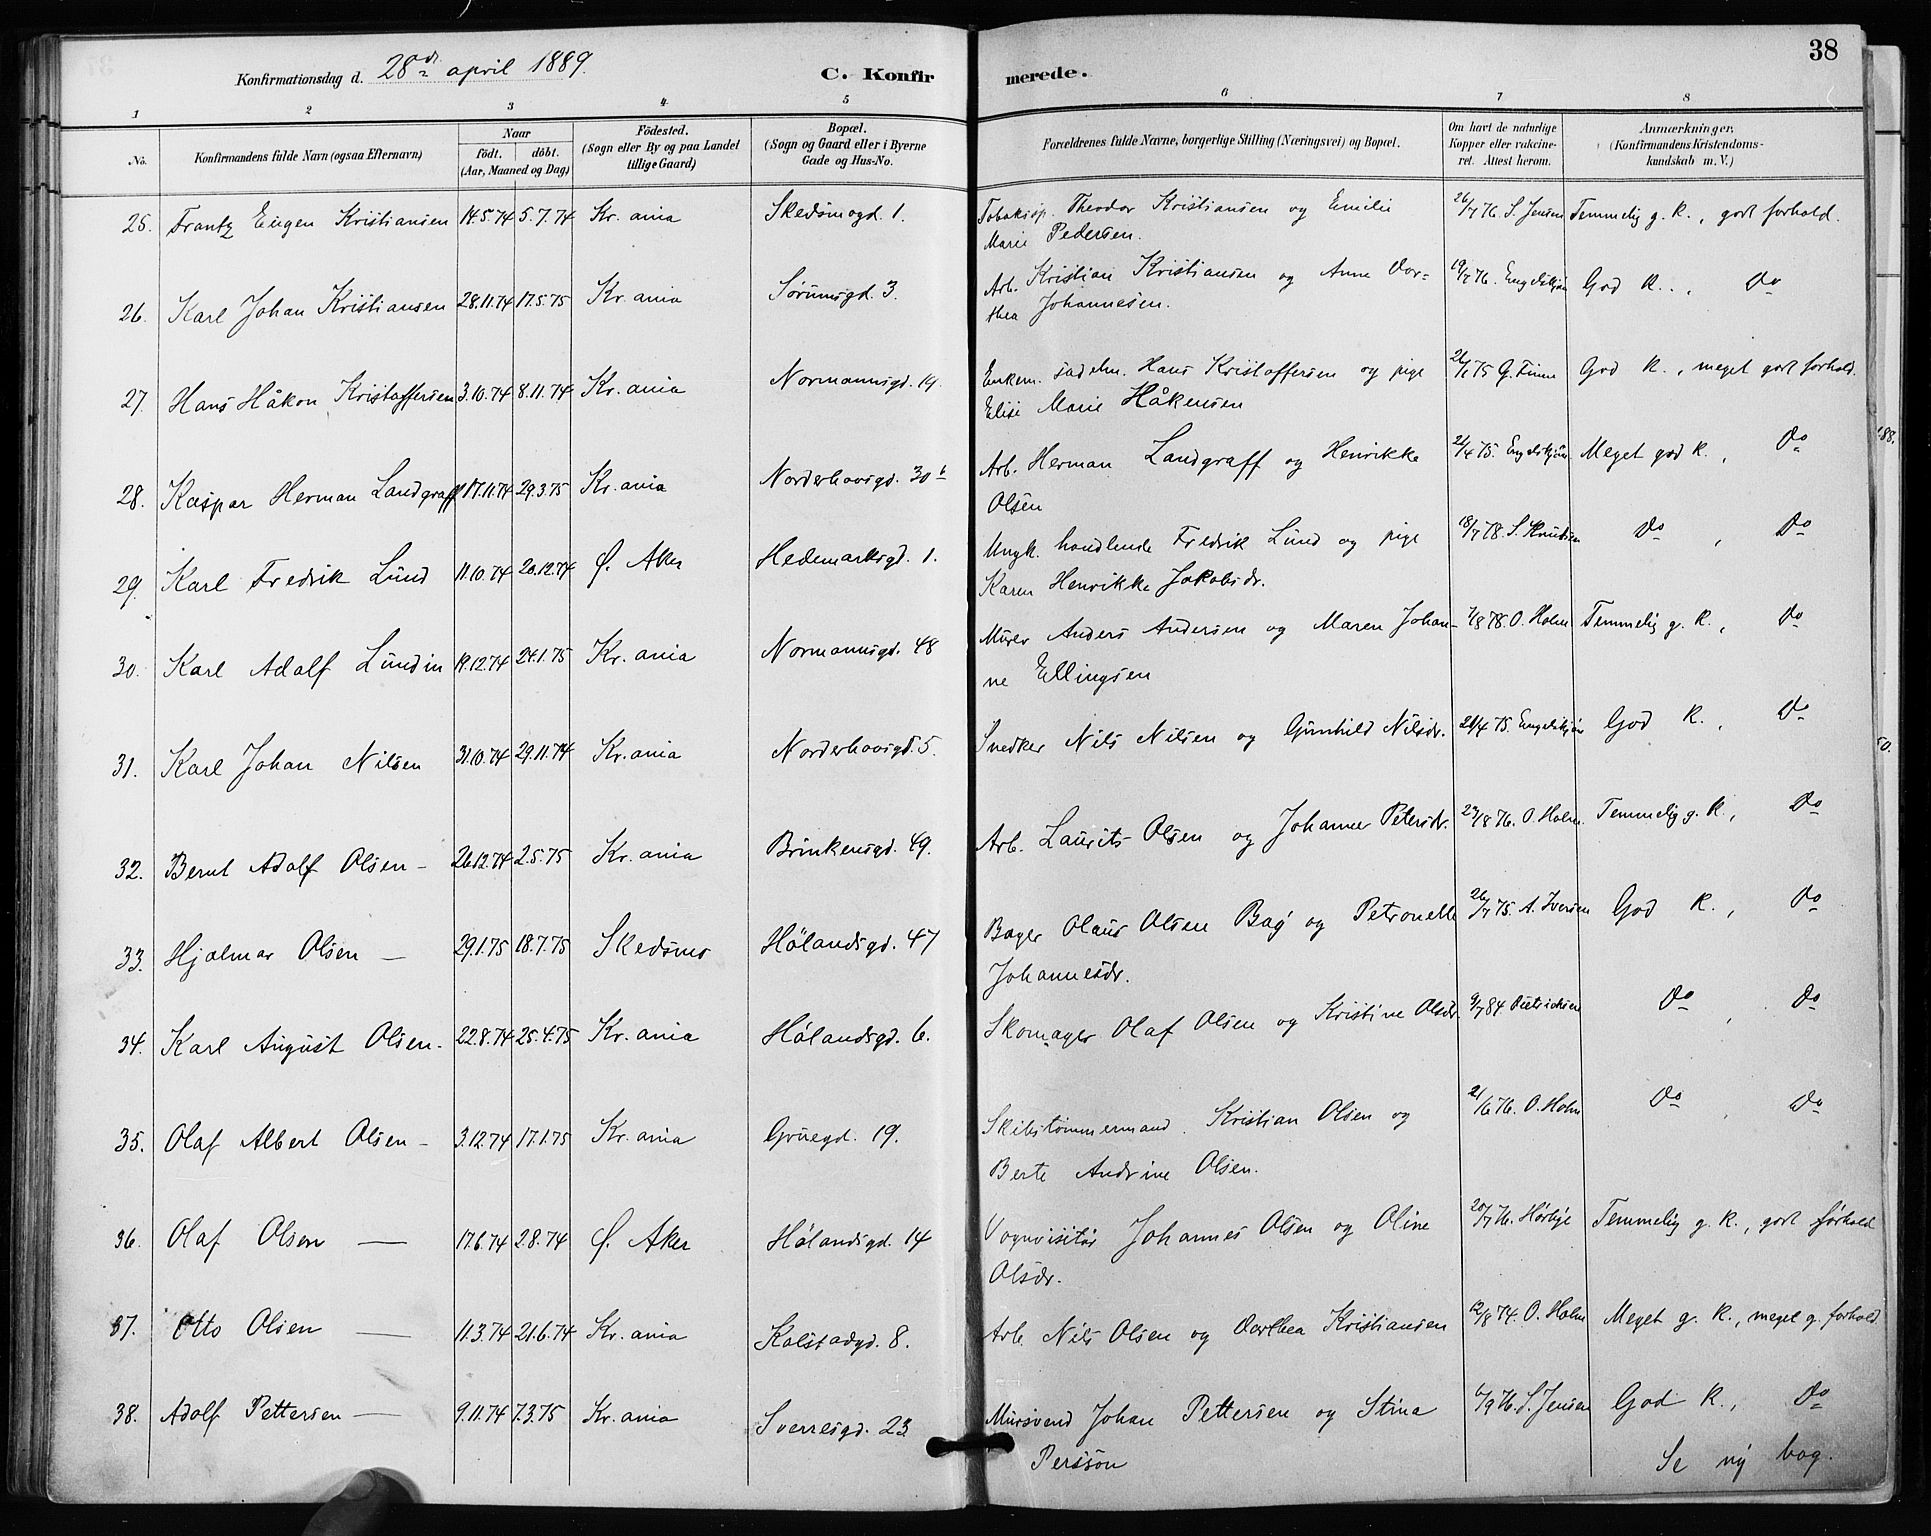 38
Konfirmationsdag d. 28de april 1889. C. Konfirmerede.
1 2 3 4 5 6 7 8
No. Konfirmandens fulde Navn (ogsaa Efternavn) Naar Födt. döbt. (Aar, Maaned og Dag) Födested. (Sogn eller By og paa Landet tillige Gaard) Bopæl. (Sogn og Gaard eller i Byerne Gade og Hus-No. Forældrenes fulde Navne, borgerlige Stilling (Næringsvei) og Bopæl. Om havt de naturlige Kopper eller vakcineret. Attest herom. Anmærkninger. (Konfirmandens Kristendomskundskab m. V.)
25. Frantz Eugen Kristiansen 14.5.74 5.7.74 Kr.ania Skedsmogd. 1. Tobaksp. Theodor Kristiansen og Emilie 26/7 76. S. Jensen Temmelig g. k., godt forhold.
Marie Pedersen.
26. Karl Johan Kristiansen 28.11.74 17.5.75 Kr.ania Sørumsgd. 3. Arb. Kristian Kristiansen og Anne Dor- 19/7 76. Engelskjøn God k., do
thea Johannesen.
27. Hans Håkon Kristoffersen 3.10.74 8.11.74 Kr.ania Normannsgd. 19. Enkem. sadelm. Hans Kristoffersen og pige 75 G. Finne God k., meget godt forhold.
Elise Marie Håkensen
28. Kaspar Herman Landgraff 17.11.74 29.3.75 Kr.ania Norderhovsgd. 30b Arb. Herman Landgraff og Henrikke 75. Engelskjøn Meget god k., do
Olsen
29. Karl Fredrik Lund 11.10.74 20.12.74 Ø. Aker Hedemarksgd. 1. Ungk. handlende Fredrik Lund og pige 18/7 78. S. Knudsen do, do
Karen Henrikke Jakobsdr.
30. Karl Adolf Lundin 19.12.74 24.1.75 Kr.ania Normannsgd. 48 Murer Anders Andersen og Maren Johan- 7/8 78. O. Holm Temmelig g. k., do
ne Ellingsen
31. Karl Johan Nilsen 31.10.74 29.11.74 Kr.ania Norderhovsgd. 5. Snedker Nils Nilsen og Gunhild Nilsdr. 21/4 75. Engelskjøn God k., do
32. Bernt Adolf Olsen – 26.12.74 2.5.75 Kr.ania Brinkensgd. 49. Arb. Laurits Olsen og Johanne Petersdr. 23/8 76. O. Holm. Temmelig g. k., do
33. Hjalmar Olsen – 29.1.75 18.7.75 Skedsmo Hølandsgd. 47 Bager Olaus Olsen Bag og Petronelle 26/7 75. A. Iversen God k., do
Johannesdr.
34. Karl August Olsen – 22.8.74 25.4.75 Kr.ania Hølandsgd. 6. Skomager Olaf Olsen og Kristine Olsdr. 9/7 84 Dietrichsen do, do
35. Olaf Albert Olsen – 3.12.74 17.1.75 Kr.ania Gruegd. 19. Skibstømmermand Kristian Olsen og 21/6 76. O. Holm do, do
Berte Andrine Olsen.
36. Olaf Olsen – 17.6.74 2.8.74 Ø. Aker Hølandsgd. 14 Vognvisitør Johannes Olsen og Oline 20/7 76. Hørbye Temmelig g. k., godt forhold
Olsdr.
37. Otto Olsen – 11.3.74 21.6.74 Kr.ania Kalstadgd. 8. Arb. Nils Olsen og Dorthea Kristiansen 12/8 74. O. Holm Meget g. k., meget g. forhold
38. Adolf Pettersen – 9.11.74 7.3.75 Kr.ania Sverresgd. 23 Mursvend Johan Pettersen og Stina 6/9 76. S. Jensen God k., do
Persson
Se ny bog.